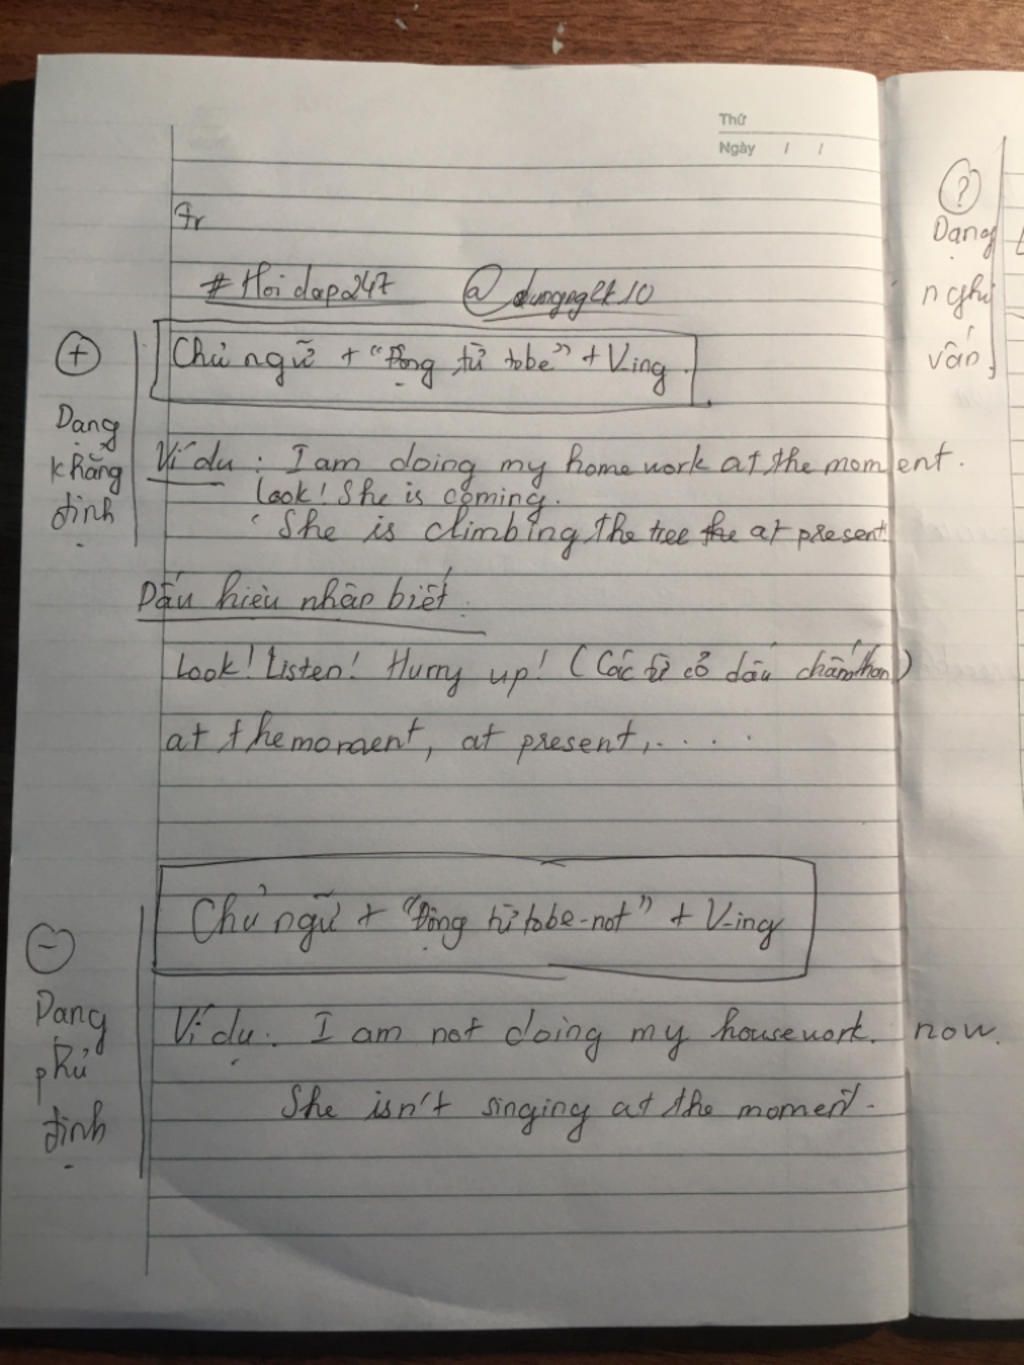 Thứ
Ngày / /
Tr
#Hoidap247 @dungnglt10
Chủ ngữ + "Động từ tobe" + V-ing.
+
Dạng khẳng định
Ví dụ: I am doing my homework at the moment.
Look! She is coming.
She is climbing the tree the at present
Dấu hiệu nhận biết.
Look! Listen! Hurry up! (Các từ có dấu chấm than)
at the moment, at present,....
Chủ ngữ + "Động từ tobe-not" + V-ing
-
Dạng phủ định
Ví dụ: I am not doing my housework. now.
She isn't singing at the moment.
?
Dạng nghi vấn